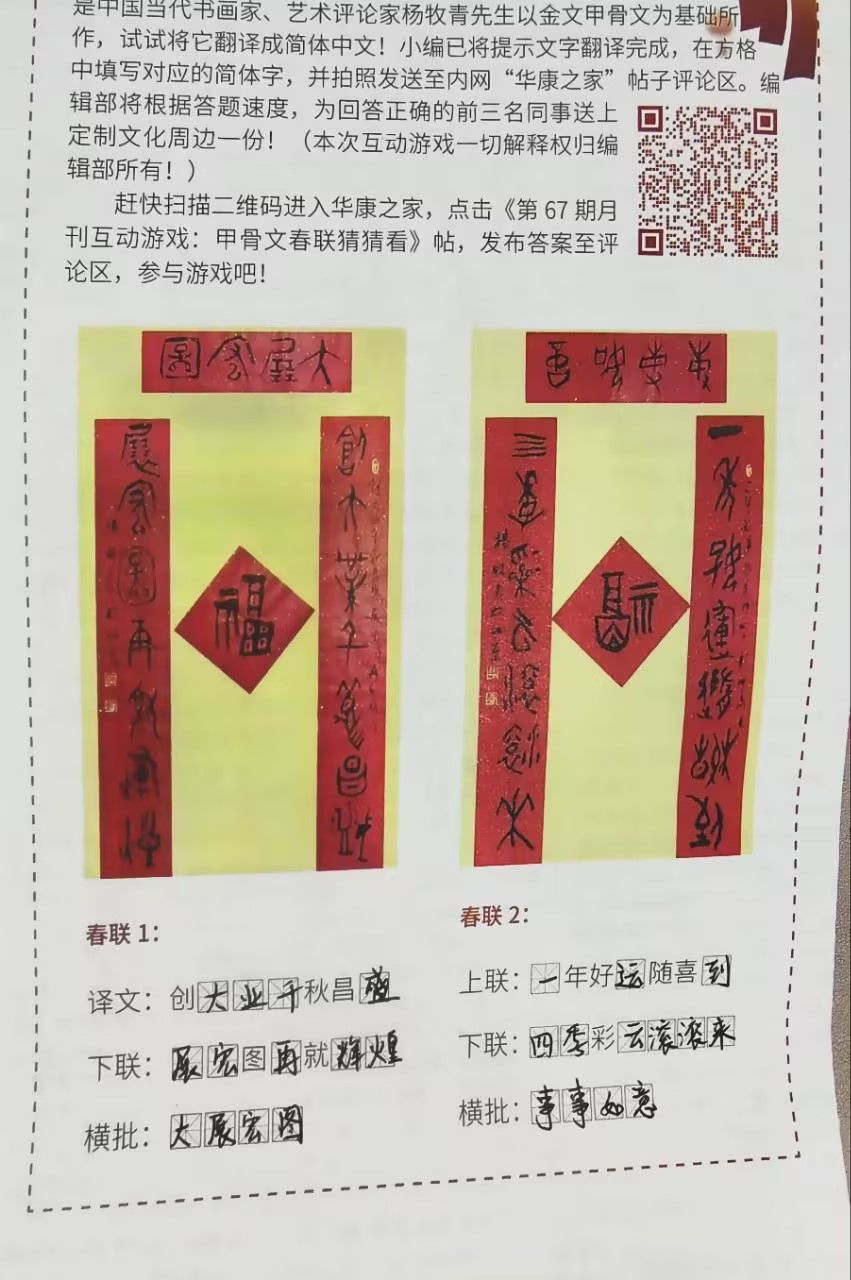 是中国当代书画家、艺术评论家杨牧青先生以金文甲骨文为基础所
作，试试将它翻译成简体中文！小编已将提示文字翻译完成，在方格
中填写对应的简体字，并拍照发送至内网“华康之家”帖子评论区。编
辑部将根据答题速度，为回答正确的前三名同事送上
定制文化周边一份！（本次互动游戏一切解释权归编
辑部所有！）
赶快扫描二维码进入华康之家，点击《第 67 期月
刊互动游戏：甲骨文春联猜猜看》帖，发布答案至评
论区，参与游戏吧！
圖宏展大
創大業千秋昌盛
展宏圖再就輝煌
福
福
春联 1：
译文：创大业千秋昌盛
下联：展宏图再就辉煌
横批：大展宏图
春联 2：
上联：一年好运随喜到
下联：四季彩云滚滚来
横批：事事如意